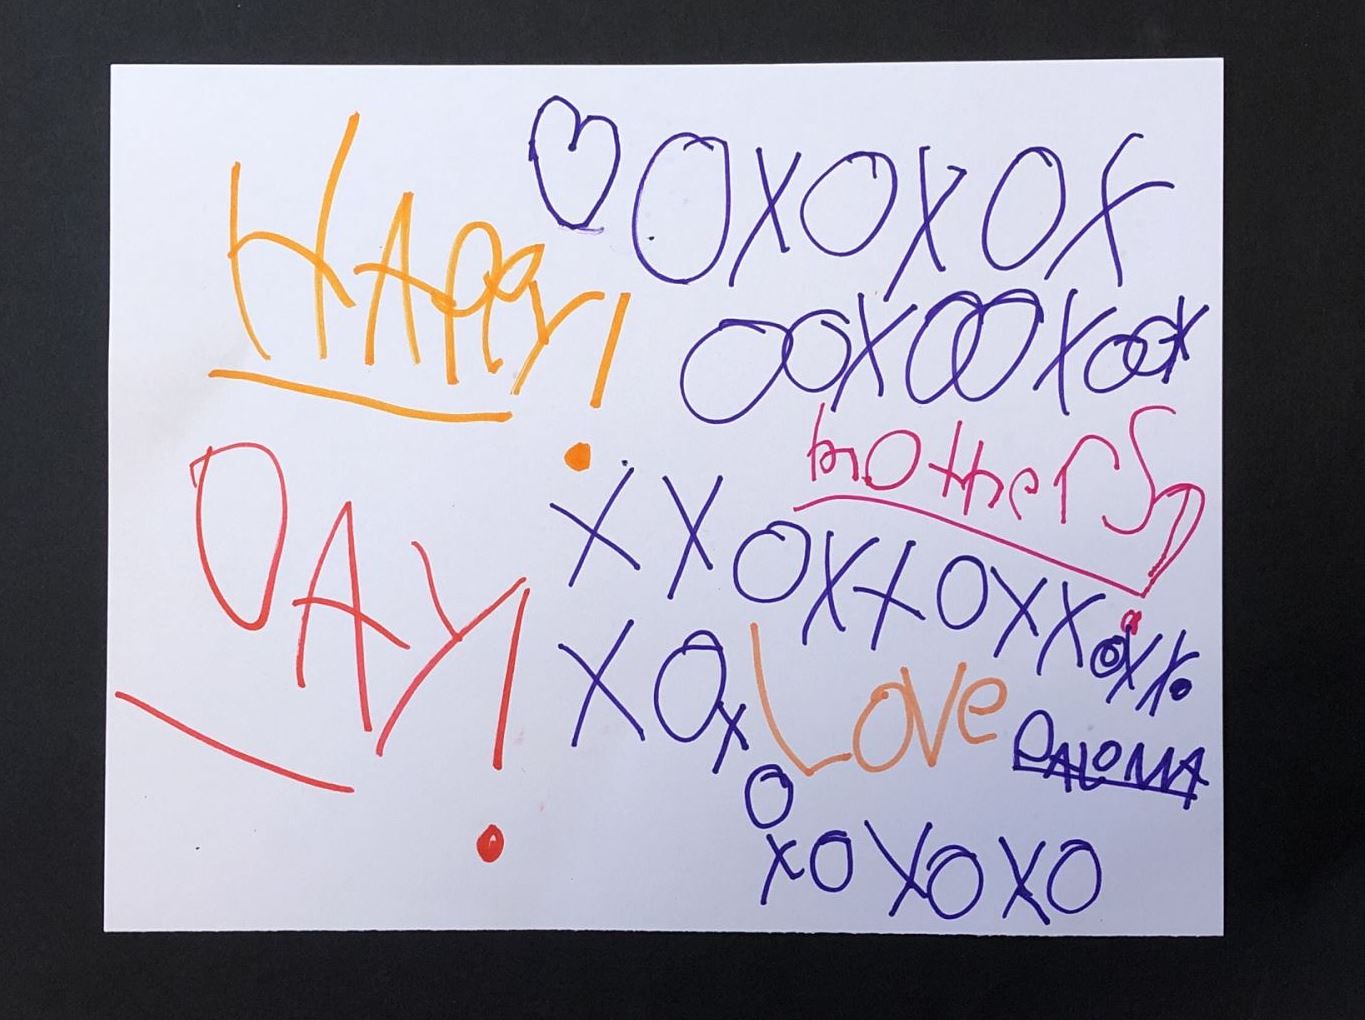 HAPPY!
♡ OXOXOX
OOXOOXOOX
mothers
DAY!
XXOXXOXXOXX.
XOX
Love
PALOMA
O
XOXOXO